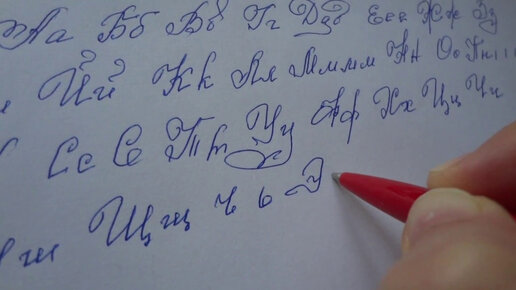 Аа Бб Вб Гг Ддб Еее Жж Зз
Йй Кк Лл Мммм Нн Оо Пп
Сс С Тт Уу Фф Хх Цц Чч
ш Щщщ ъ ь Э